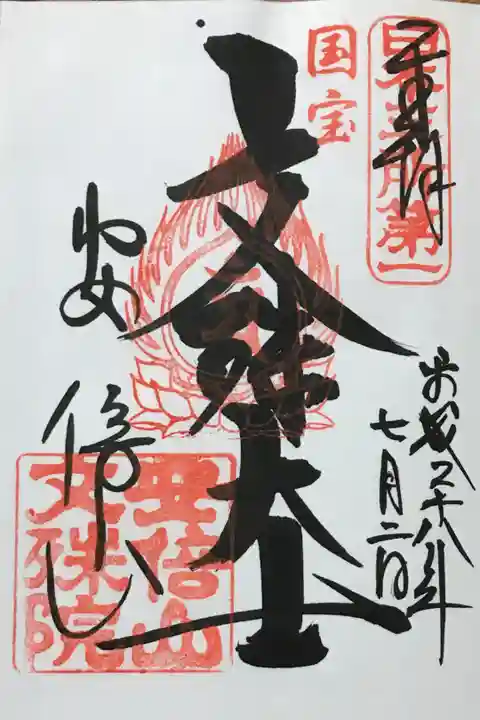 日本三文殊第一
奉拝
平成二十八年
七月二日
国宝
文殊大士
安倍山
安倍山
文殊院